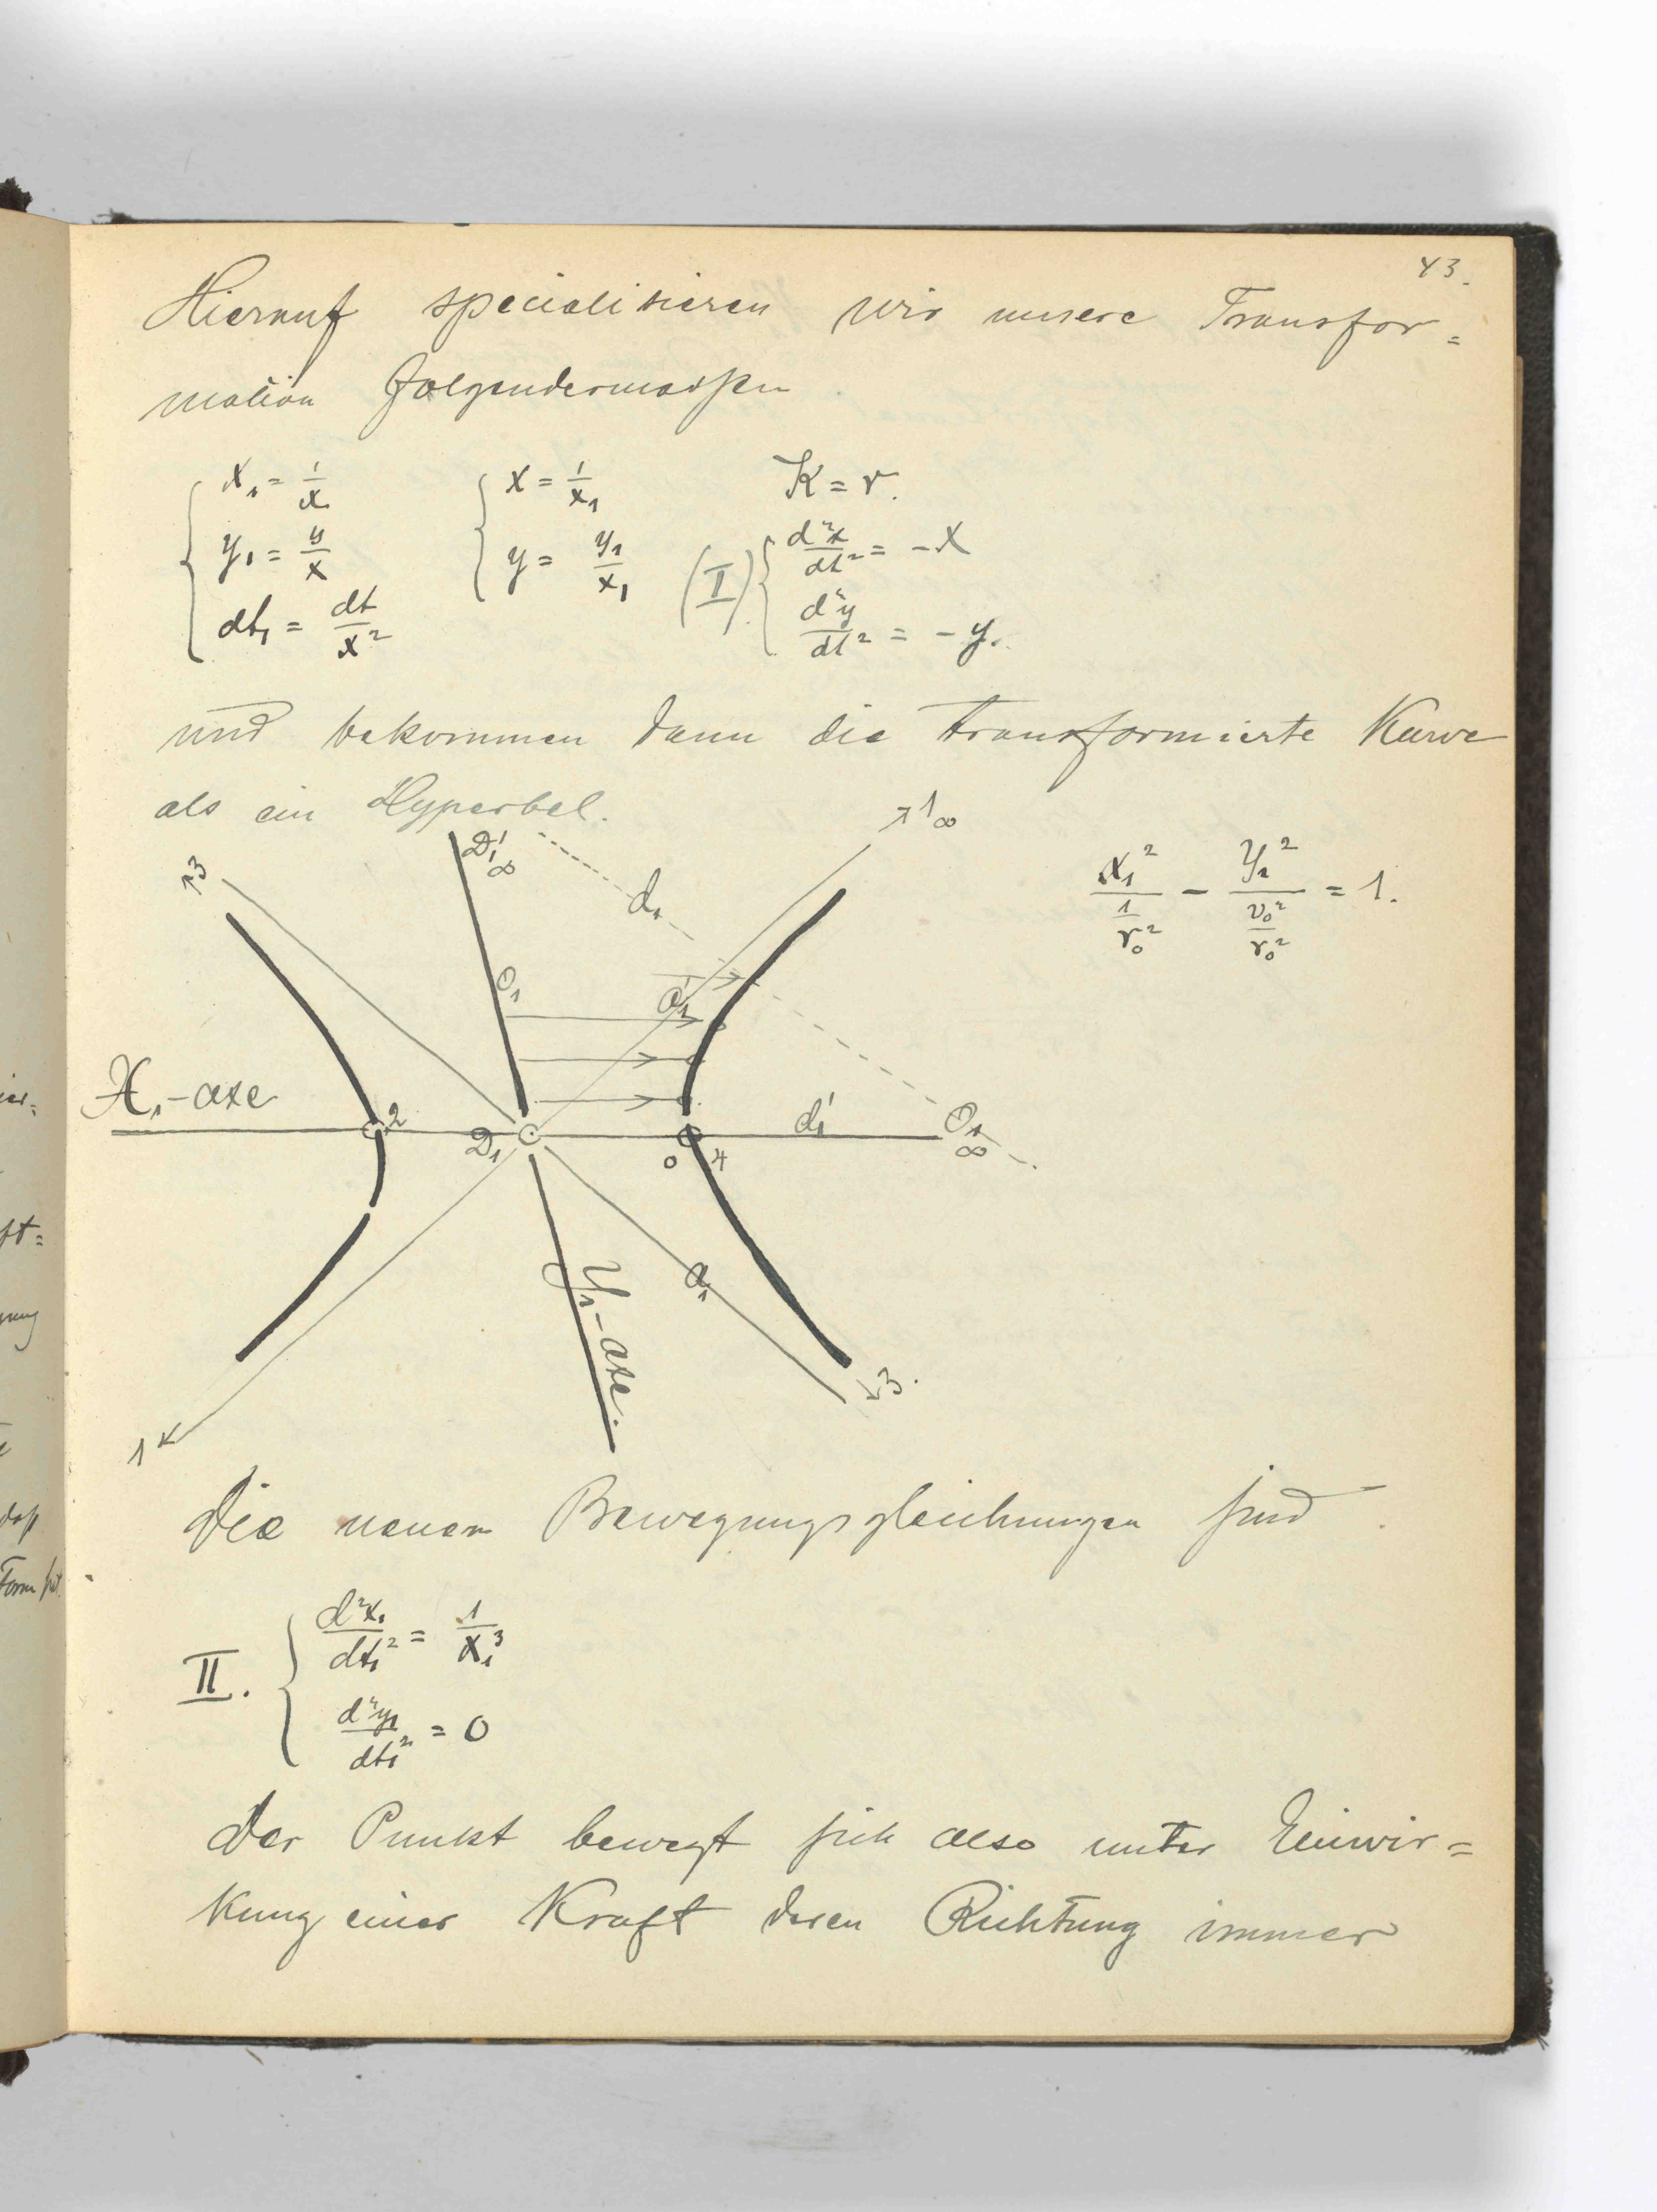 43.
Hierauf specialisieren wir unsere Transfor=
mation folgendermassen
x₁ = 1/x
y₁ = y/x
dt₁ = dt/x²
x = 1/x₁
y = y₁/x₁
K = r.
(I) d²x/dt² = -x
d²y/dt² = -y.
und bekommen dann die transformierte Kurve
als ein Hyperbel.
x₁²/(1/r₀²) - y₁²/(v₀²/r₀²) = 1.
↗1∞
D₁'∞
3
d₁
O₁
a₁'
X₁-axe
2
D₁
0
4
d₁'
O₁∞
Y₁-axe.
a₁
3.
1
Die neuen Bewegungsgleichungen sind
II. d²x₁/dt₁² = 1/x₁³
d²y₁/dt₁² = 0
Der Punkt bewegt sich also unter Einwir=
kung einer Kraft deren Richtung immer